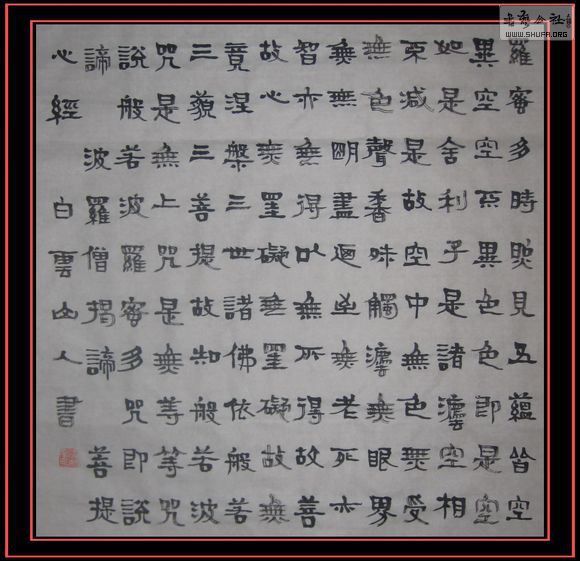 羅蜜多時照見五蘊皆空
異空空不異色色即是空
如是舍利子是諸灋空相
不減是故空中無色無受
無色聲香味觸灋無眼界
無無明盡迺至無老死亦
智亦無得以無所得故菩
故心無罣礙無罣礙故無
竟涅槃三世諸佛依般若
三藐三菩提故知般若波
咒是無上咒是無等等咒
說般若波羅蜜多咒即說
諦 波羅僧揭諦 菩提
心經 白雲山人書
WWW.SHUFA.ORG